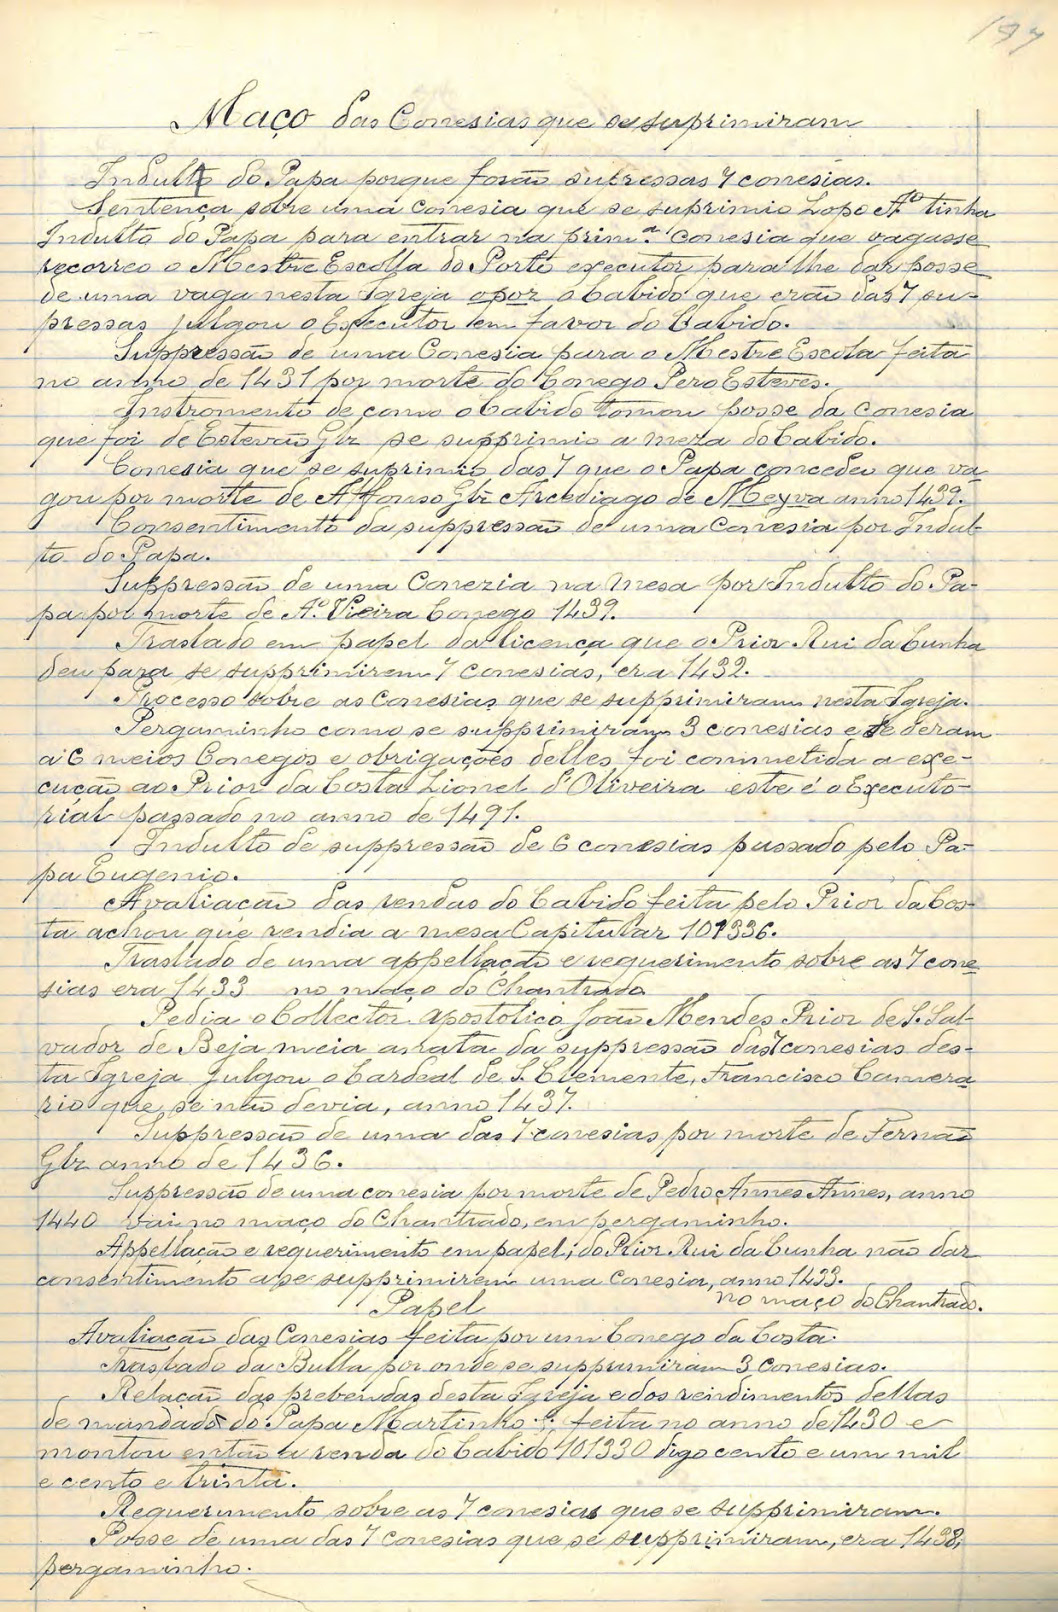 197
Maço das Conesias que se suprimiram
Indulto do Papa porque forão supressas 7 conesias.
Sentença sobre uma conesia que se suprimio Lopo Aº tinha
Indulto do Papa para entrar na prim.ª conesia que vagasse
recorreo o Mestre Escolla do Porto executor para lhe dar posse
de uma vaga nesta Igreja opor o Cabido que erão das 7 su-
pressas julgou o Executor em favor do Cabido.
Suppressão de uma Conesia para o Mestre Escola feita
no anno de 1431 por morte do Conego Pero Esteves.
Instromento de como o Cabido tomou posse da conesia
que foi de Estevão Glz se supprimio a meza do Cabido.
Conesia que se suprimio das 7 que o Papa concedeu que va-
gou por morte de Affonso Glz Arcediago de Neyva anno 1439.
Consentimento da suppressão de uma conesia por Indul-
to do Papa.
Suppressão de uma Conezia na mesa por Indulto do Pa-
pa por morte de Aº. Vieira Conego 1439.
Traslado em papel da licença que o Prior Rui da Cunha
deu para se supprimirem 7 conesias, era 1432.
Processo sobre as Conesias que se supprimiram nesta Igreja.
Pergaminho como se supprimiram 3 conesias e se deram
a 6 meios Conegos e obrigações delles foi commetida a exe-
cução ao Prior da Costa Lionel d'Oliveira este é o Executo-
rial passado no anno de 1491.
Indulto de suppressão de 6 conesias passado pelo Pa-
pa Eugenio.
Avaliação das rendas do Cabido feita pelo Prior da Cos-
ta achou que rendia a mesa Capitular 101336.
Traslado de uma appellação e requerimento sobre as 7 cone-
sias era 1433 no maço do Chantrado
Pedia o Collector apostolico João Mendes Prior de S. Sal-
vador de Beja meia anata da suppressão das 7 conesias des-
ta Igreja Julgou o Cardeal de S. Clemente, Francisco Camera-
rio que se não devia, anno 1437.
Suppressão de uma das 7 conesias por morte de Fernão
Glz anno de 1436.
Suppressão de uma conesia por morte de Pedro Annes Annes, anno
1440 vai no maço do Chantrado, em pergaminho.
Appellação e requerimento em papel; do Prior Rui da Cunha não dar
consentimento a se supprimirem uma Conesia, anno 1433.
no maço do Chantrado.
Papel
Avaliação das Conesias feita por um Conego da Costa.
Traslado da Bulla por onde se supprimiram 3 conesias.
Relação das prebendas desta Igreja e dos reindimentos dellas
de mandado do Papa Martinho 5; feita no anno de 1430 e
montou então a renda do Cabido 101330 digo cento e um mil
e cento e trinta.
Requerimento sobre as 7 conesias que se supprimiram.
Posse de uma das 7 conesias que se supprimiram, era 1438,
pergaminho.